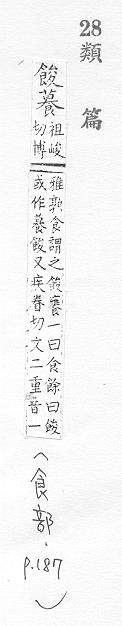 28 類篇
餕
祖峻
切博
雅孰食謂之餕饔一曰食餘曰餕
或作餕又眷切文二重音一
(食部, p.187)